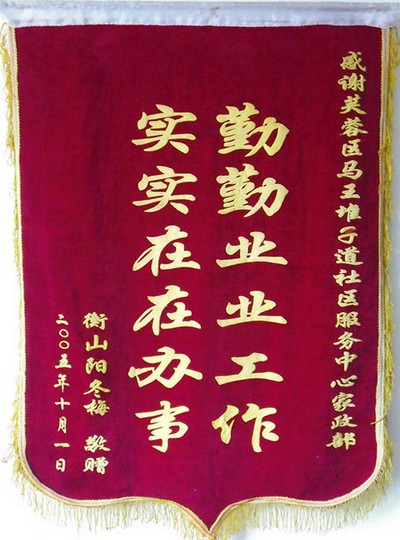 感谢芙蓉区马王堆子道社区服务中心家政部
勤勤业业工作
实实在在办事
衡山阳冬梅 敬赠
二〇〇五年十月一日